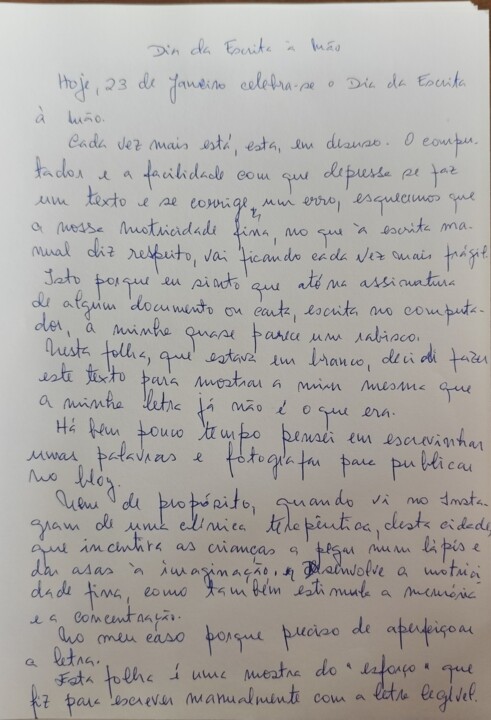 Dia da Escrita à Mão
Hoje, 23 de Janeiro celebra-se o Dia da Escrita
à Mão.
Cada vez mais está, esta, em desuso. O compu-
tador e a facilidade com que depressa se faz
um texto e se corrige, um erro, esquecemos que
a nossa motricidade fina, no que à escrita ma-
nual diz respeito, vai ficando cada vez mais frágil.
Isto porque eu sinto que até na assinatura
de algum documento ou carta, escrita no computa-
dor, a minha quase parece um rabisco.
Nesta folha, que estava em branco, decidi fazer
este texto para mostrar a mim mesma que
a minha letra já não é o que era.
Há bem pouco tempo pensei em escrevinhar
umas palavras e fotografar para publicar
no blog.
Nem de propósito, quando vi no Insta-
gram de uma clínica terapêutica, desta cidade,
que incentiva as crianças a pegar num lápis e
dar asas à imaginação, Desenvolve a motrici
dade fina, como também estimula a memória
e a concentração.
No meu caso porque preciso de aperfeiçoar
a letra.
Esta folha é uma mostra do "esforço" que
fiz para escrever manualmente com a letra legível.